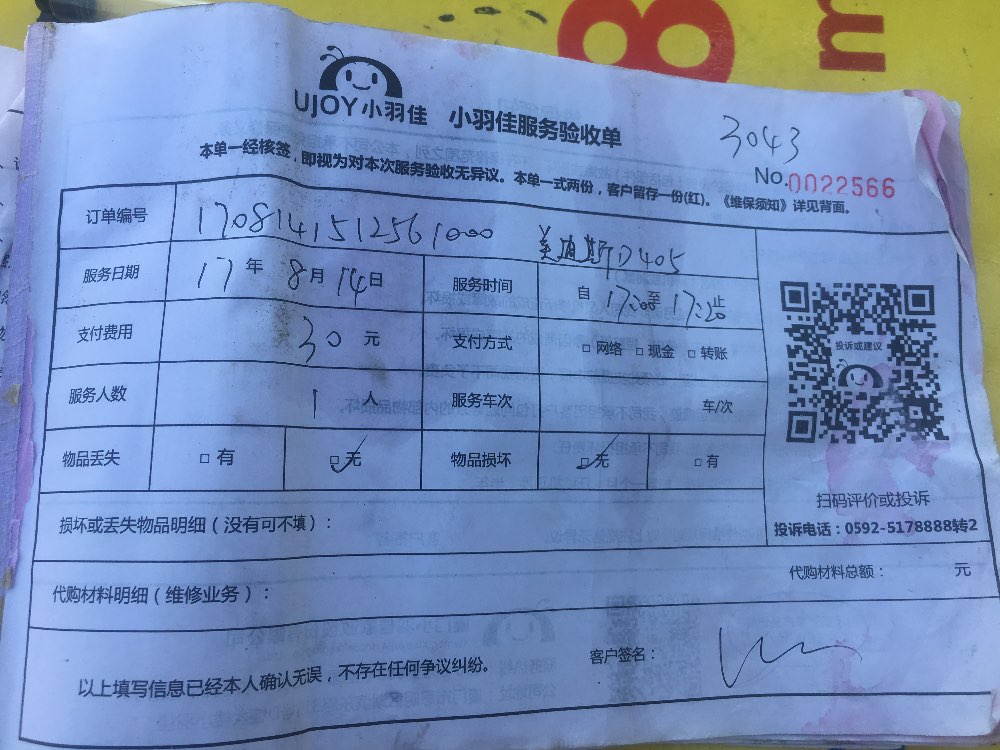 8
m
UJOY小羽佳 小羽佳服务验收单
3043
No.0022566
本单一经核签，即视为对本次服务验收无异议。本单一式两份，客户留存一份(红)。《维保须知》详见背面。
订单编号 170814151256 1000 美迪斯D405
服务日期 17年8月14日 服务时间 自17:00至17:20止
支付费用 30元 支付方式 □网络 □现金 □转账
服务人数 1人 服务车次 车/次
物品丢失 □有 □无 物品损坏 □无 □有
投诉或建议
扫码评价或投诉
投诉电话：0592-5178888转2
损坏或丢失物品明细（没有可不填）：
代购材料明细（维修业务）： 代购材料总额： 元
以上填写信息已经本人确认无误，不存在任何争议纠纷。 客户签名：